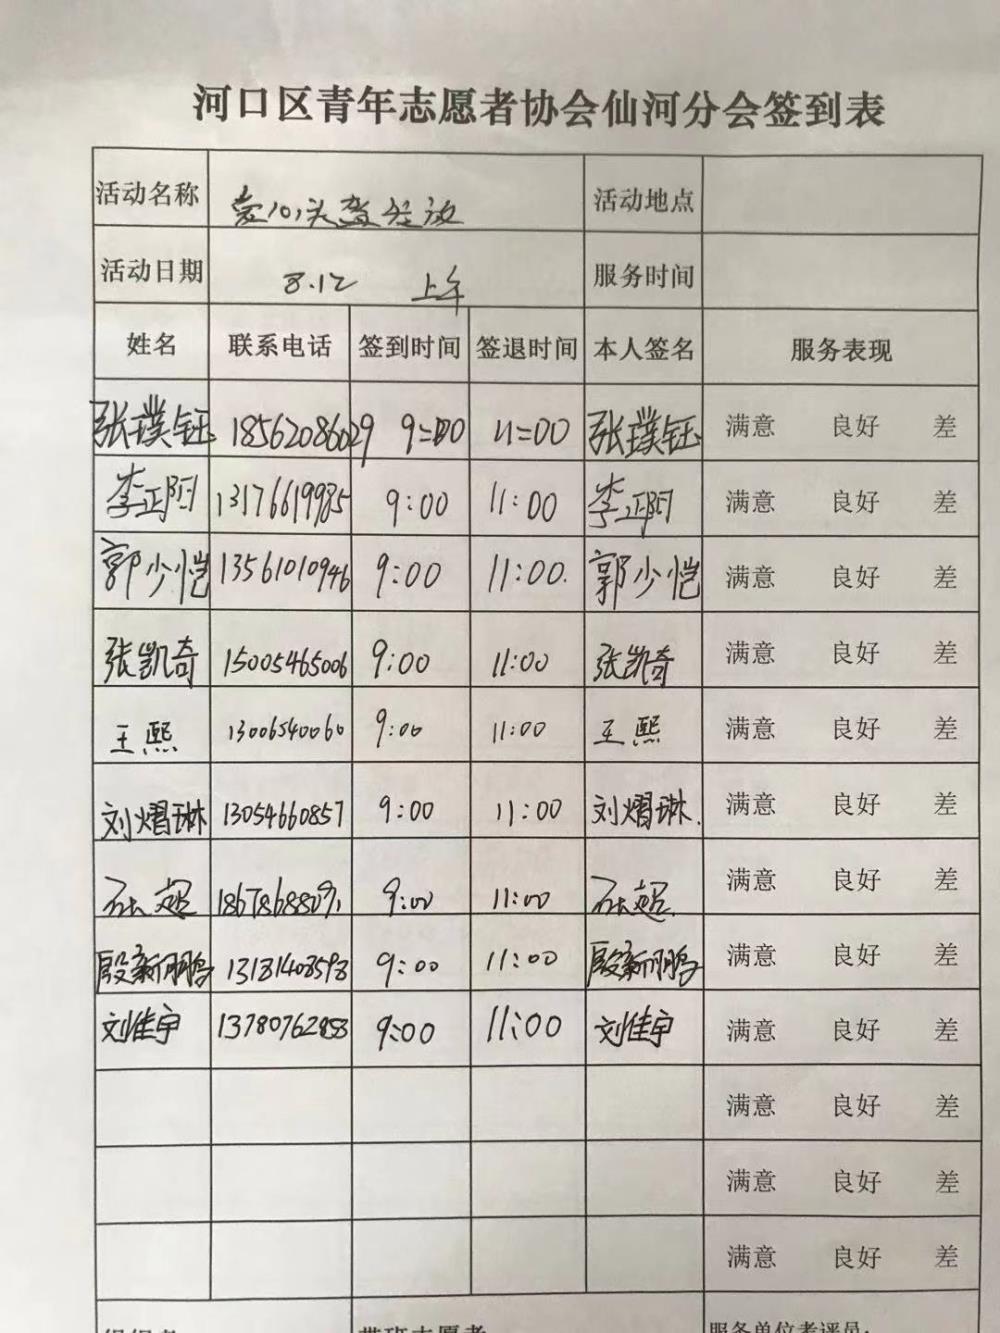 河口区青年志愿者协会仙河分会签到表
活动名称 爱心头盔发放 活动地点
活动日期 8.12 上午 服务时间
姓名 联系电话 签到时间 签退时间 本人签名 服务表现
张璞钰 18562086029 9:00 11:00 张璞钰 满意 良好 差
李正阳 13176619985 9:00 11:00 李正阳 满意 良好 差
郭少恺 13561010946 9:00 11:00. 郭少恺 满意 良好 差
张凯奇 15005465006 9:00 11:00 张凯奇 满意 良好 差
王熙 13006540060 9:00 11:00 王熙 满意 良好 差
刘熠琳 13054660857 9:00 11:00 刘熠琳. 满意 良好 差
石超 9:00 11:00 石超. 满意 良好 差
殷新鹏 13181408598 9:00 11:00 殷新鹏 满意 良好 差
刘佳宇 13780762858 9:00 11:00 刘佳宇 满意 良好 差
满意 良好 差
满意 良好 差
满意 良好 差